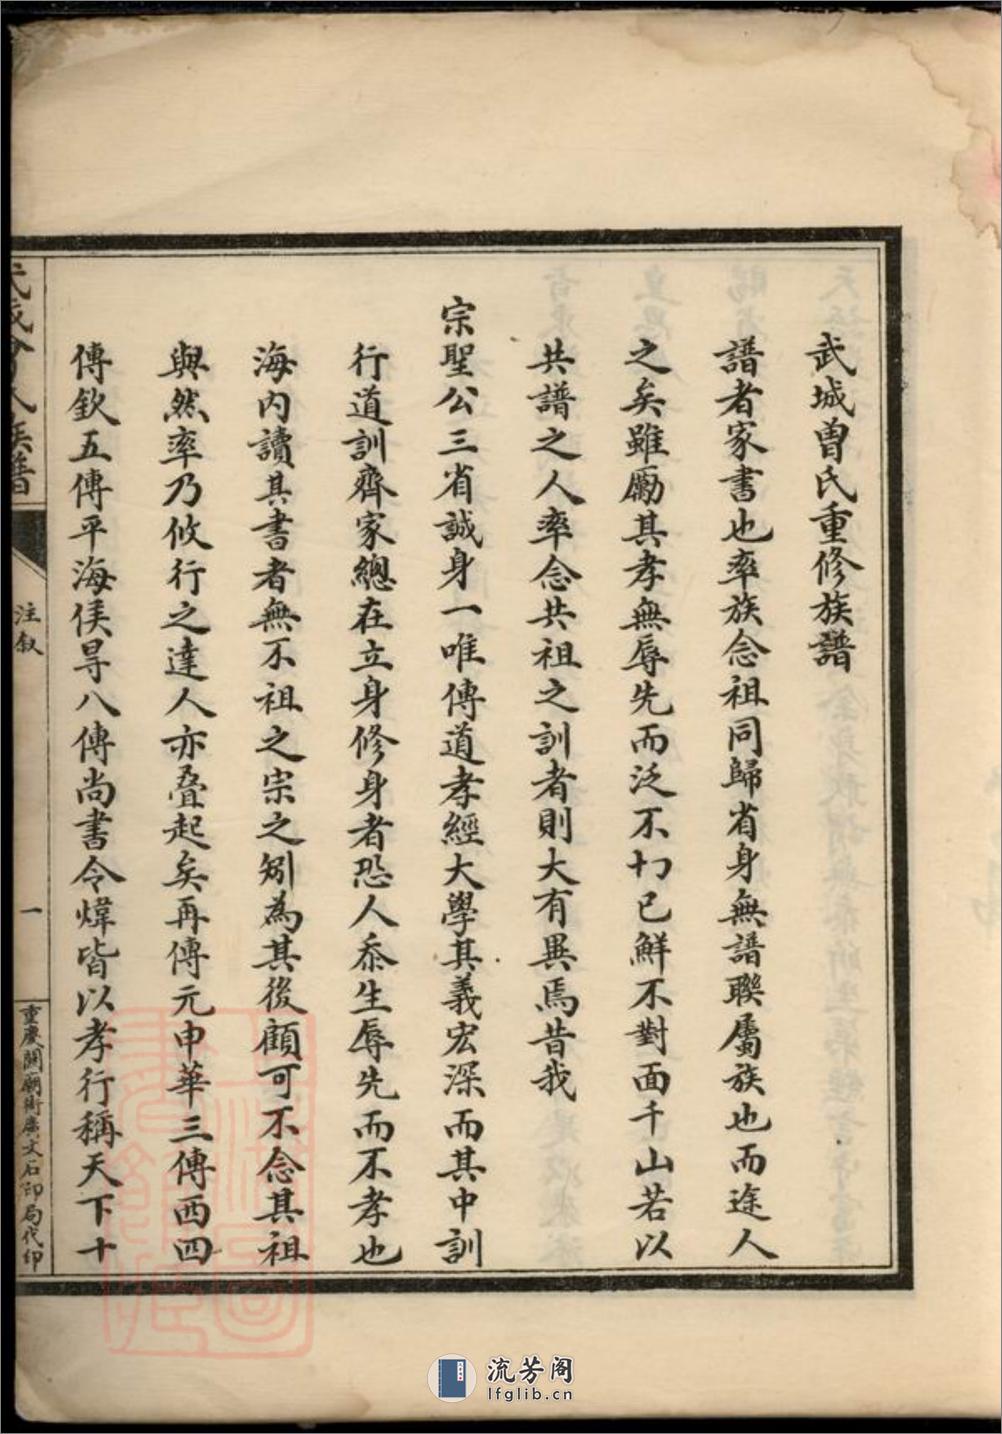 武城曾氏重修族譜
譜者家書也率族念祖同歸省身無譜聯屬族也而途人
之矣雖勵其孝無辱先而泛不切已鮮不對面千山若以
共譜之人率念共祖之訓者則大有異焉昔我
宗聖公三省誠身一唯傳道孝經大學其義宏深而其中訓
行道訓齊家總在立身修身者恐人忝生辱先而不孝也
海內讀其書者無不祖之宗之矧為其後顧可不念其祖
與然率乃攸行之達人亦叠起矣再傳元申華三傳西四
傳欽五傳平海侯㝵八傳尚書令煒皆以孝行稱天下十
族譜
注叙
一
重慶關廟街廣文石印局代印
流芳阁
lfglib.cn